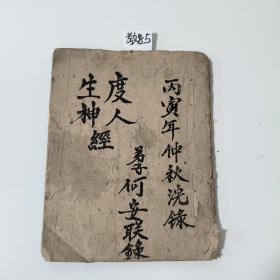 85
丙寅年仲秋浣錄
度人
生神經
弟子何安联錄